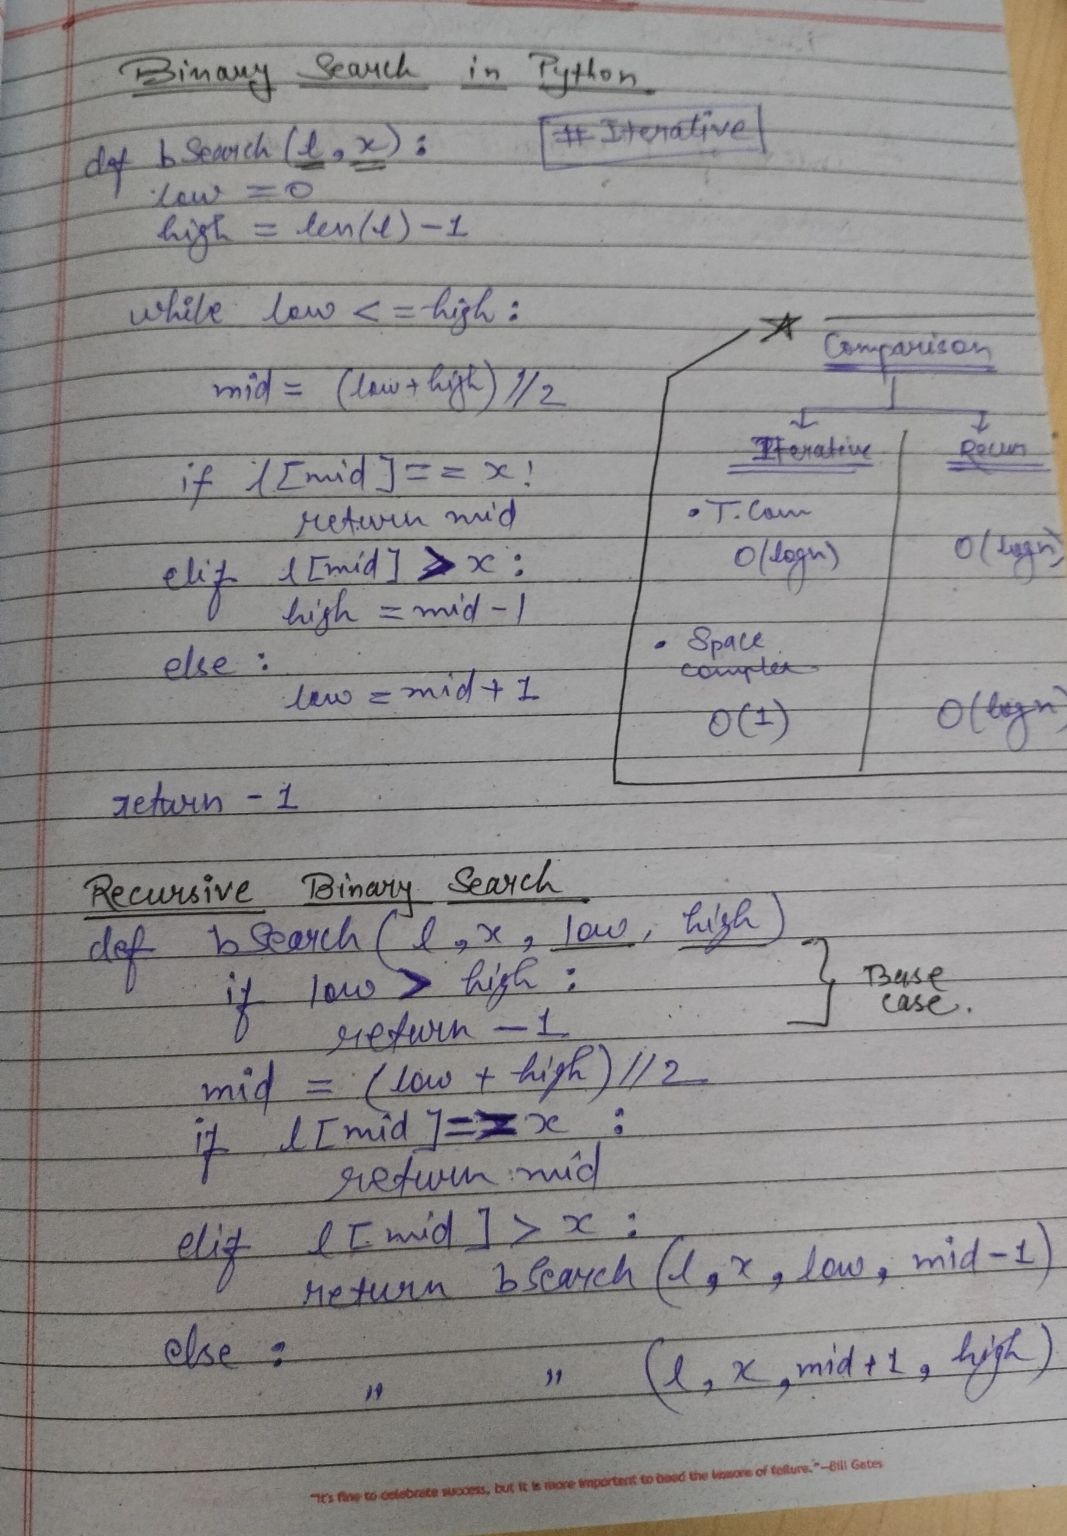 Binary Search in Python
# Iterative
def bSearch(l, x):
low = 0
high = len(l) - 1
while low <= high:
mid = (low + high) // 2
if l[mid] == x:
return mid
elif l[mid] > x:
high = mid - 1
else:
low = mid + 1
return -1
Comparison
Iterative Recur
• T. Com
O(logn) O(logn)
• Space
complex
O(1) O(logn)
Recursive Binary Search
def bSearch(l, x, low, high)
if low > high:
return -1
Base
case.
mid = (low + high) // 2
if l[mid] == x:
return mid
elif l[mid] > x:
return bSearch(l, x, low, mid-1)
else:
" " (l, x, mid+1, high)
"It's fine to celebrate success, but it is more important to heed the lessons of failure."–Bill Gates